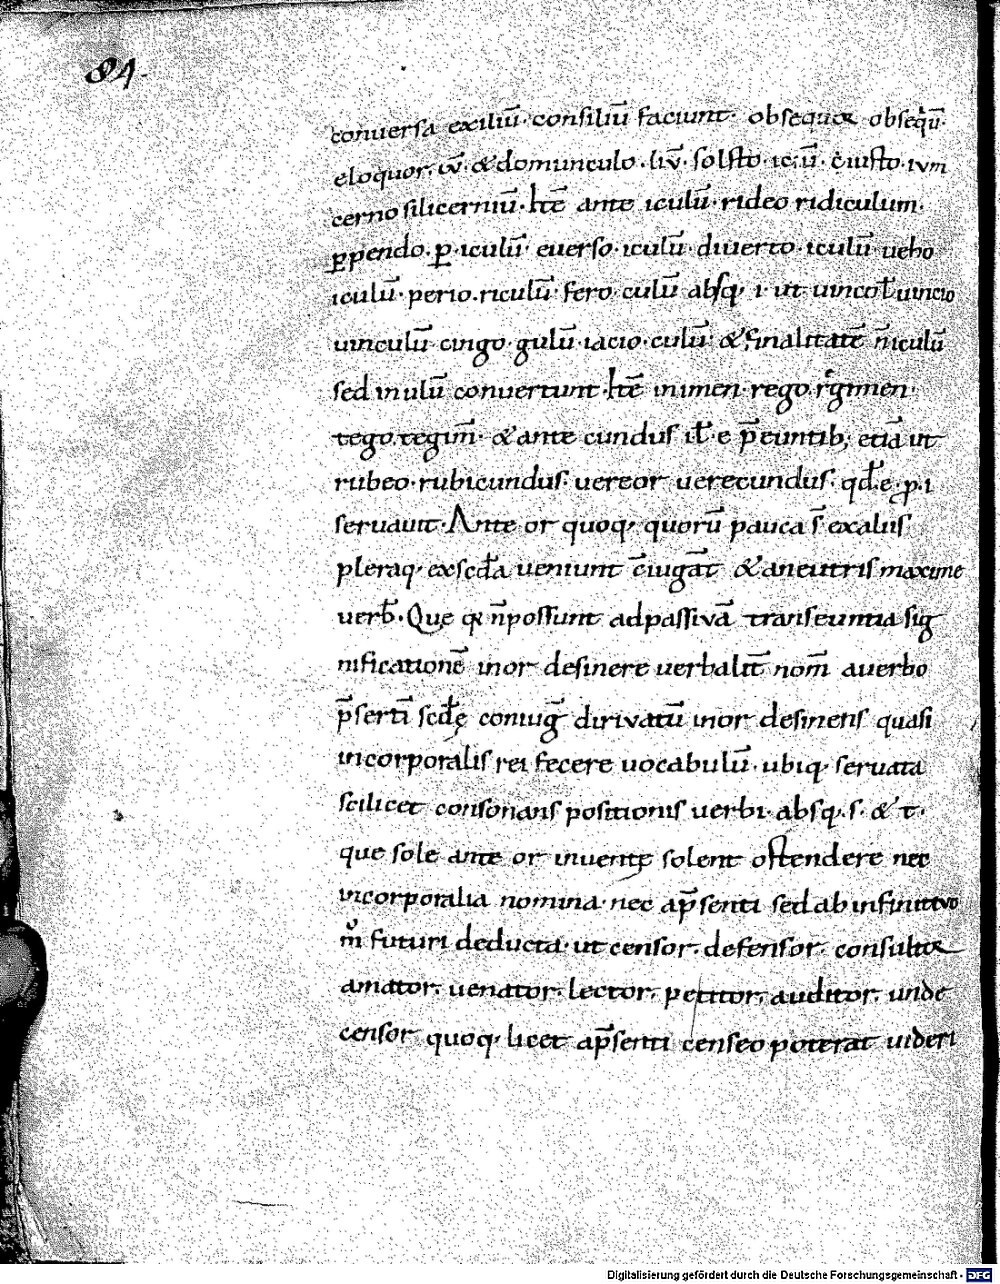 84.
conuersa exiliū· consiliū faciunt· obsequor obseqͥū·
eloquor· iū· & domunculo· liū· solsto· iciū· c̄iusto· ium
cerno siliceniū· Itē ante iculū· rideo ridiculum·
ꝑpendo· ꝑ·iculū· euerso· iculū· diuerto· iculū ueho
iculū· perio· riculū· fero· culū absq; i· ut uincol̄ uincio
uinculū· cingo· gulū· iacio· culū· & finalitatē n̄iculū
sed in ulū conuertunt· Itē in imen· rego· regimen·
tego tegim̄· & ante cundus it̄· e p̄euntib; etiā ut
rubeo· rubicundus· uereor uerecundus· qd̄· e· ꝓ· i
seruauit· Ante or quoq; quorū pauca s̄ exaliis
pleraq; exscd̄a ueniunt c̄iugat̄ & aneutris maxime
uerb̄· Que n̄possunt adpassiuā transeuntia sig
nificationē inor desinere uerbalit̄ nom̄ auerbo
p̄serti scd̄ę coniuḡ dirivatū inor desinens quasi
incorporalis rei fecere uocabulū· ubiq; seruata
scilicet consonans positionis uerbi· absq; s· & t·
que sole ante or inuentę solent ostendere nec
incorporalia nomina· nec ap̄senti sed ab infinitivo
m̊ futuri deducta· ut censor· defensor· consultor
amator· uenator· lector· petitor· auditor· unde
censor quoq; licet ap̄senti censeo poterat uideri
Digitalisierung gefördert durch die Deutsche Forschungsgemeinschaft - DFG